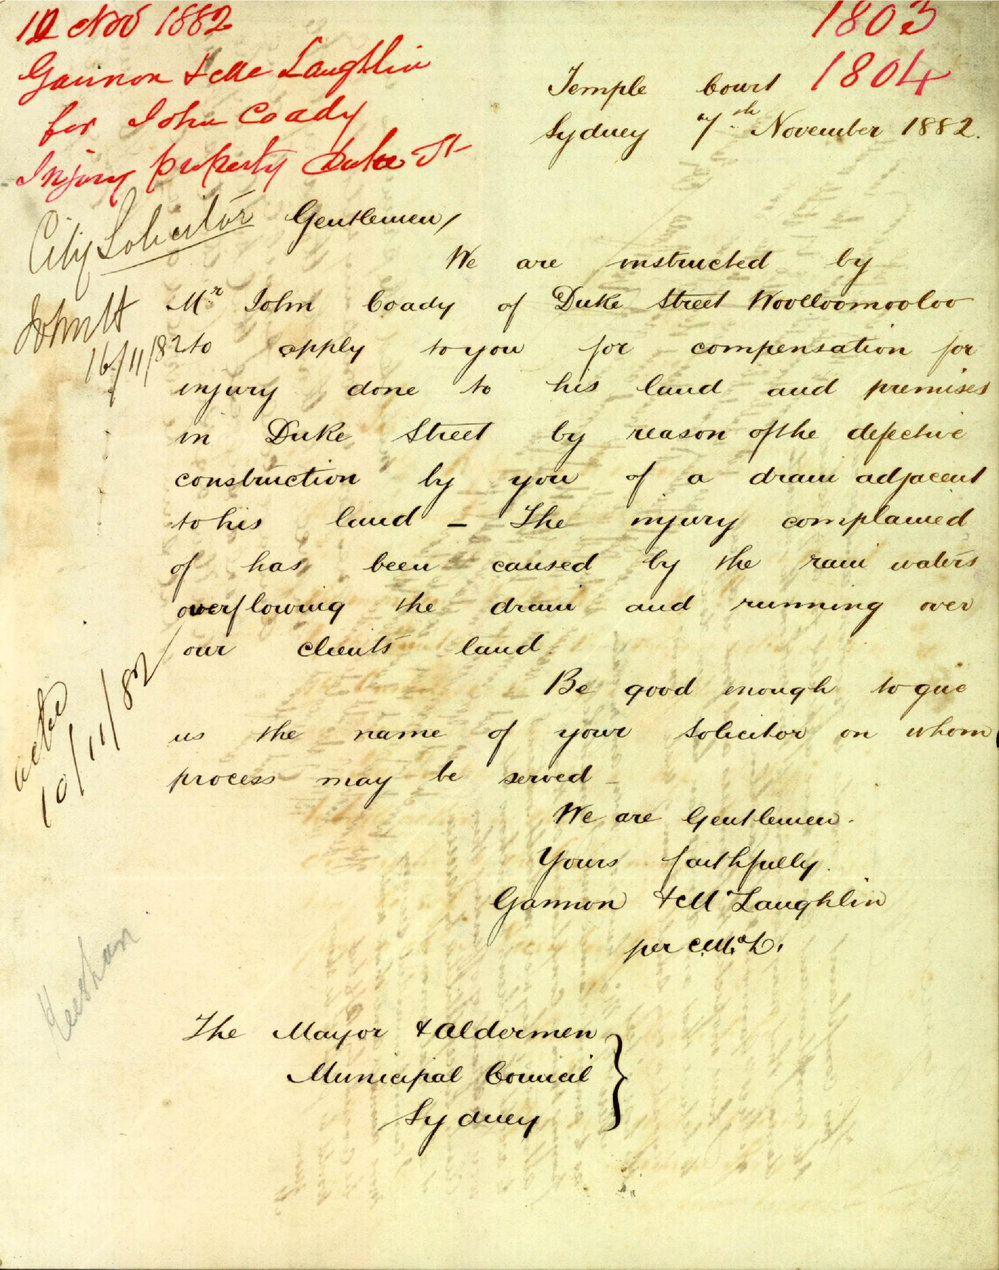 10 Nov 1882
Gannon & Mc Laughlin
for John Coady
Injury property Duke St
1803
1804
Temple Court
Sydney 7th November 1882.
City Solicitor
16/11/82
Gentlemen,
We are instructed by
Mr John Coady of Duke Street Woolloomooloo
to apply to you for compensation for
injury done to his land and premises
in Duke Street by reason of the defective
construction by you of a drain adjacent
to his land – The injury complained
of has been caused by the rain waters
overflowing the drain and running over
our clients land.
Be good enough to give
us the name of your Solicitor on whom
process may be served –
We are Gentlemen.
Yours faithfully.
Gannon & McLaughlin
per
ackd
10/11/82
The Mayor & Aldermen
Municipal Council
Sydney